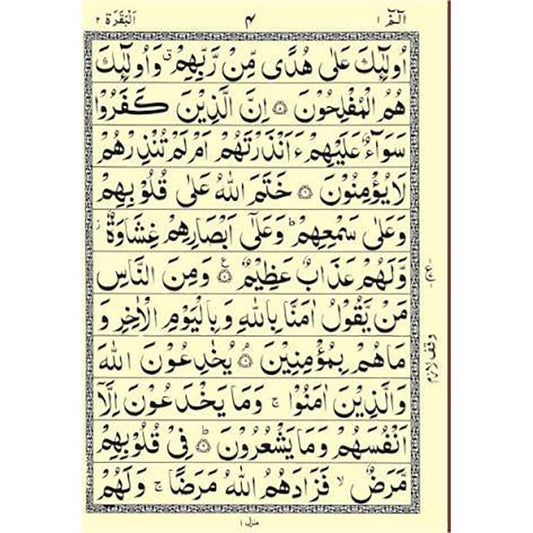 الٓمّٓ ١ ۴ اَلْبَقَرَة ٢
اُولٰٓئِكَ عَلٰى هُدًى مِّنْ رَّبِّهِمْ ۗ وَاُولٰٓئِكَ
هُمُ الْمُفْلِحُوْنَ ۝ اِنَّ الَّذِيْنَ كَفَرُوْا
سَوَآءٌ عَلَيْهِمْ ءَاَنْذَرْتَهُمْ اَمْ لَمْ تُنْذِرْهُمْ
لَا يُؤْمِنُوْنَ ۝ خَتَمَ اللهُ عَلٰى قُلُوْبِهِمْ
وَعَلٰى سَمْعِهِمْ ؕ وَعَلٰٓى اَبْصَارِهِمْ غِشَاوَةٌ ز
وَّلَهُمْ عَذَابٌ عَظِيْمٌ ۝ وَمِنَ النَّاسِ
مَنْ يَّقُوْلُ اٰمَنَّا بِاللهِ وَبِالْيَوْمِ الْاٰخِرِ وَ
مَا هُمْ بِمُؤْمِنِيْنَ ۝ يُخٰدِعُوْنَ اللهَ
وَالَّذِيْنَ اٰمَنُوْا ۚ وَمَا يَخْدَعُوْنَ اِلَّآ
اَنْفُسَهُمْ وَمَا يَشْعُرُوْنَ ۝ فِيْ قُلُوْبِهِمْ
مَّرَضٌ ۙ فَزَادَهُمُ اللهُ مَرَضًا ۚ وَلَهُمْ
وقف لازم
منزل ١